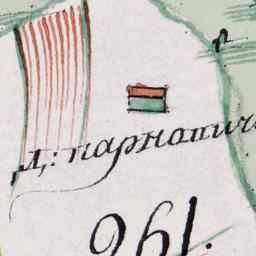 д: парнопич
261.